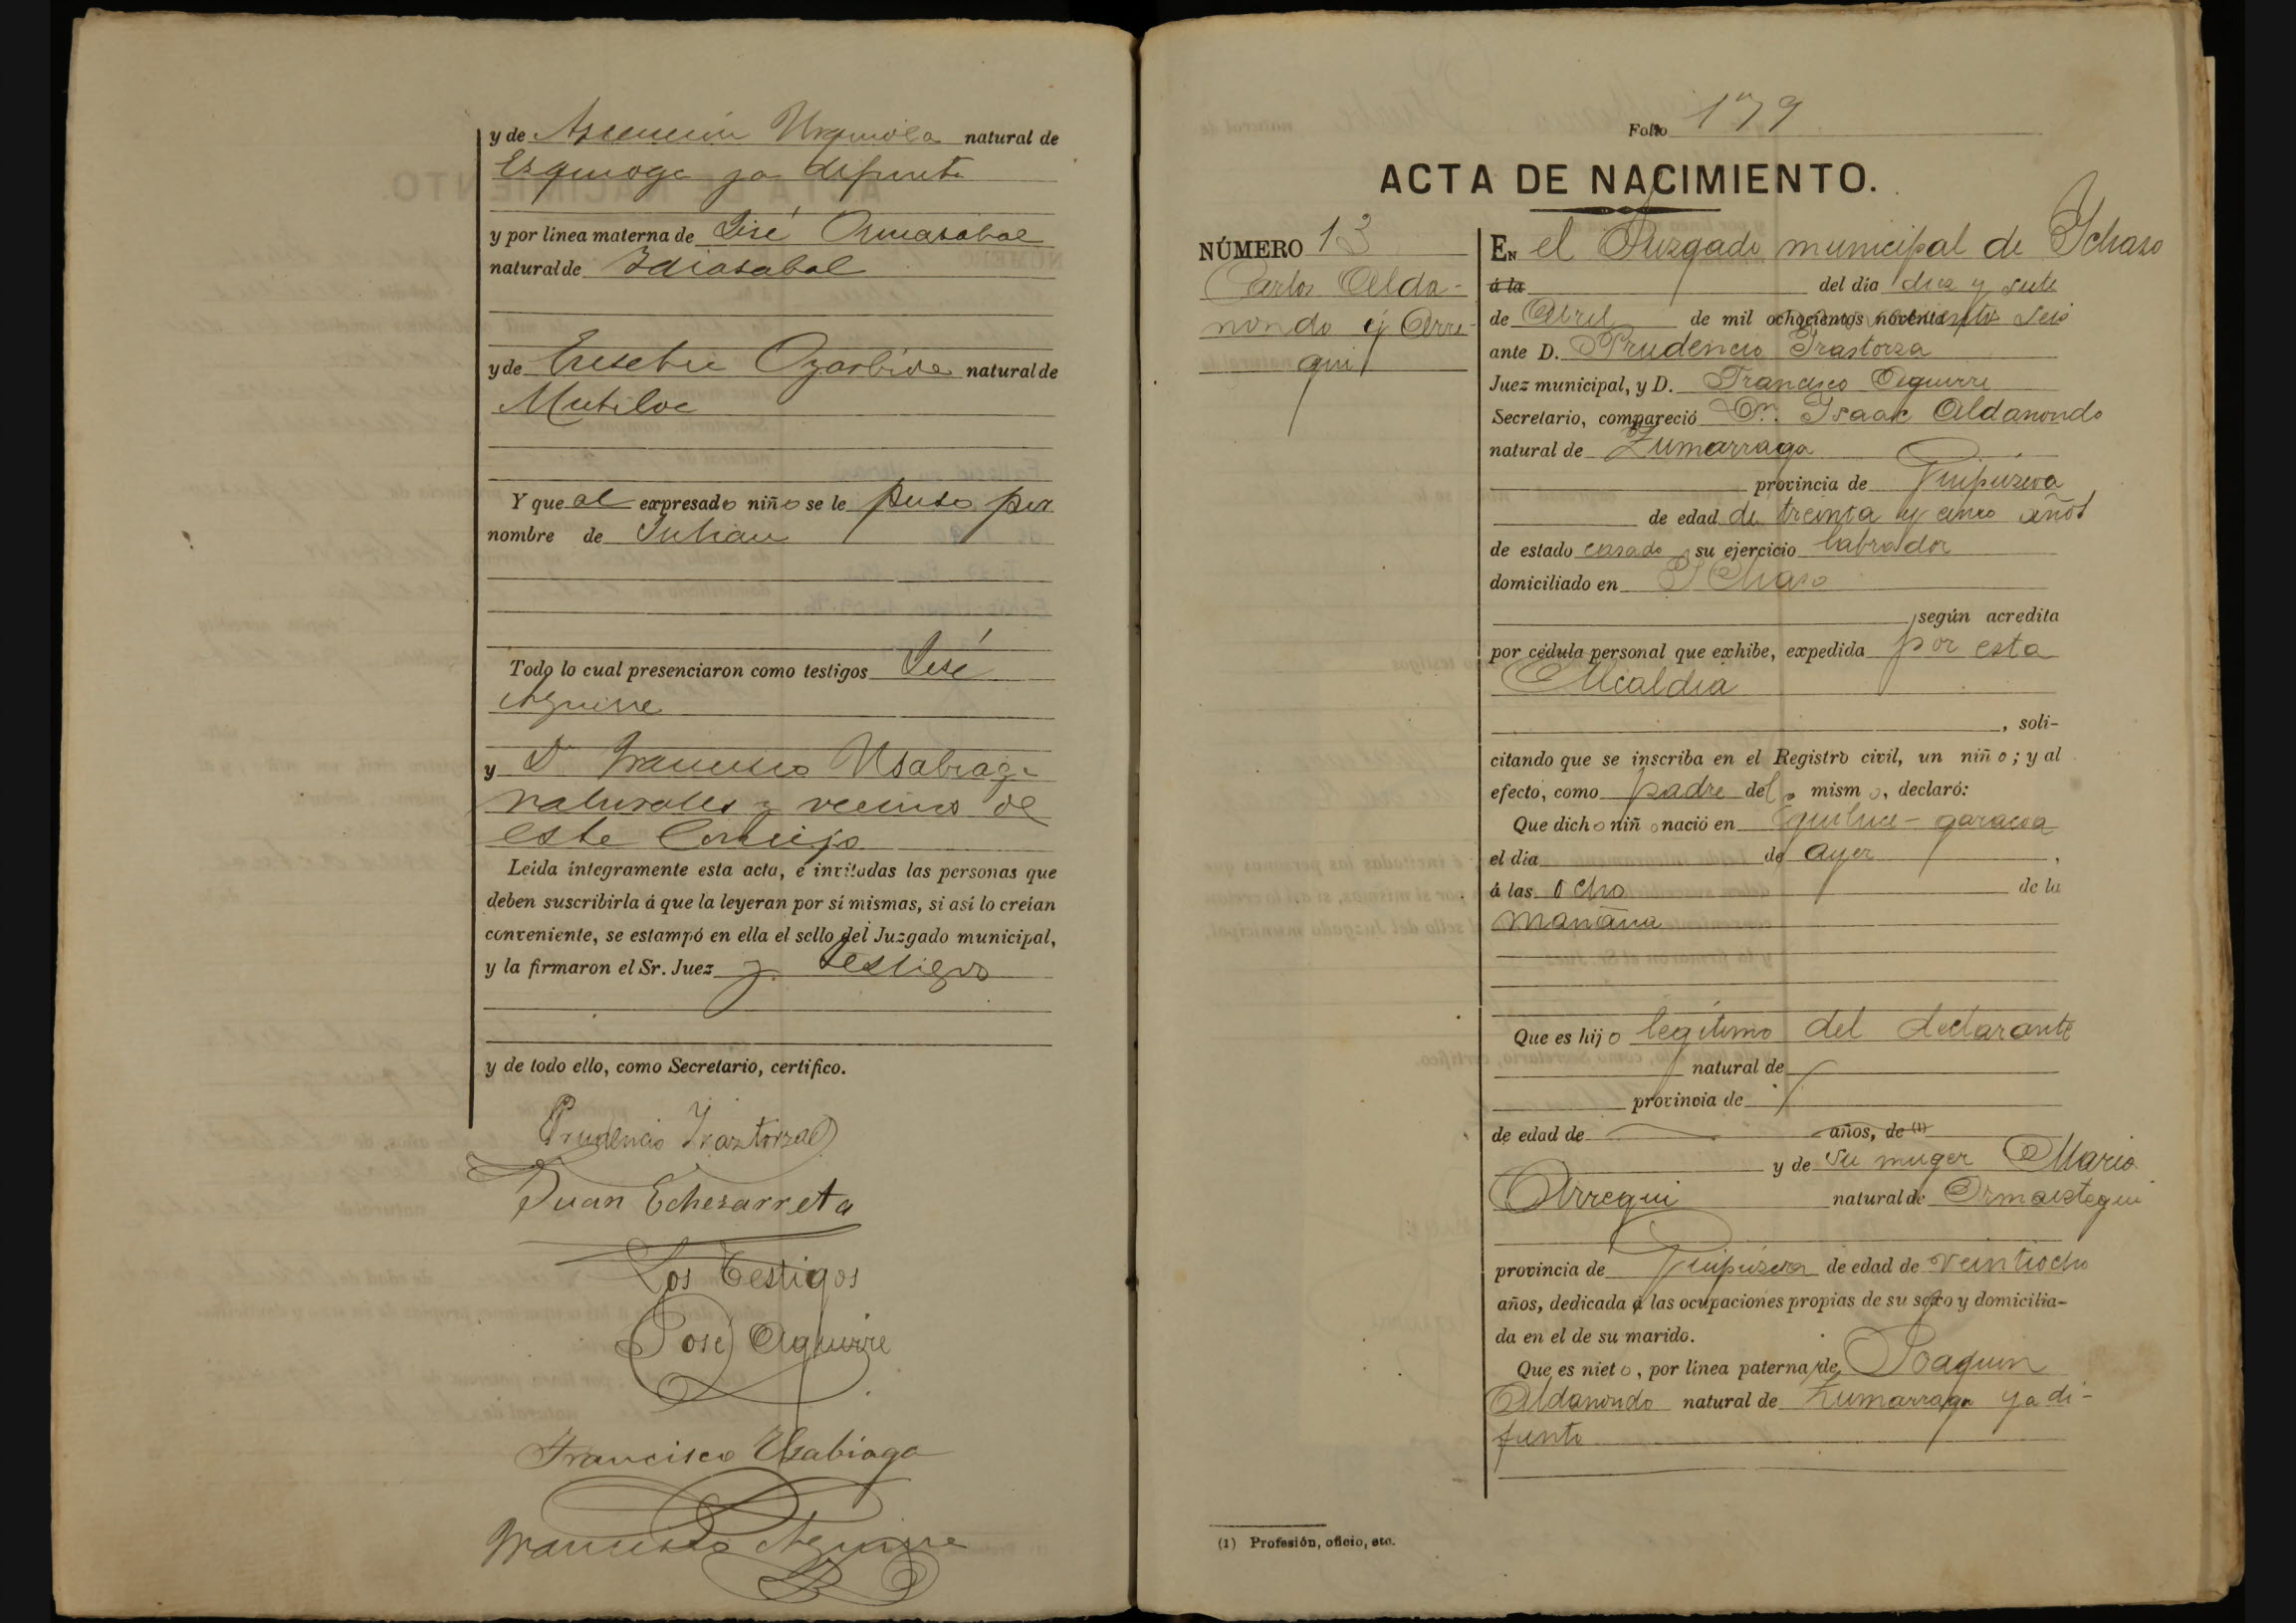 y de Ascención Urquiola natural de
Ezquioga ya difunta
y por línea materna de José Ormazabal
natural de Idiazabal
y de Eusebia Ozarbide natural de
Mutiloa
Y que al expresado niño se le puso por
nombre de Julian
Todo lo cual presenciaron como testigos José
Aguirre
y Dn Francisco Usabiaga
naturales y vecinos de
este Concejo
Leída íntegramente esta acta, é invitadas las personas que
deben suscribirla á que la leyeran por sí mismas, si así lo creían
conveniente, se estampó en ella el sello del Juzgado municipal,
y la firmaron el Sr. Juez y testigos
y de todo ello, como Secretario, certifico.
Prudencio Iraztorza
Juan Echezarreta
Los Testigos
José Aguirre
Francisco Usabiaga
Francisco Aguirre
Folio 179
ACTA DE NACIMIENTO.
NÚMERO 13
Carlos Alda-
nondo y Arre-
gui
EN el Juzgado municipal de Ychaso
á la del día diez y siete
de Abril de mil ochocientos noventa novecientos seis
ante D. Prudencio Irastorza
Juez municipal, y D. Francisco Aguirre
Secretario, compareció Dn. Isaac Aldanondo
natural de Zumarraga
provincia de Guipúzcoa
de edad de treinta y cinco años
de estado casado su ejercicio labrador
domiciliado en Ychaso
, según acredita
por cédula personal que exhibe, expedida por esta
Alcaldia
, soli-
citando que se inscriba en el Registro civil, un niño; y al
efecto, como padre del mismo, declaró:
Que dicho niño nació en Eguiluce-garacoa
el día de ayer,
á las ocho de la
mañana
Que es hijo legítimo del declarante
natural de
provincia de
de edad de años, de (1)
y de su muger Maria
Arregui natural de Ormaiztegui
provincia de Guipúzcoa de edad de veintiocho
años, dedicada á las ocupaciones propias de su sexo y domicilia-
da en el de su marido.
Que es nieto, por línea paterna, de Joaquin
Aldanondo natural de Zumarraga ya di-
funto
(1) Profesión, oficio, etc.